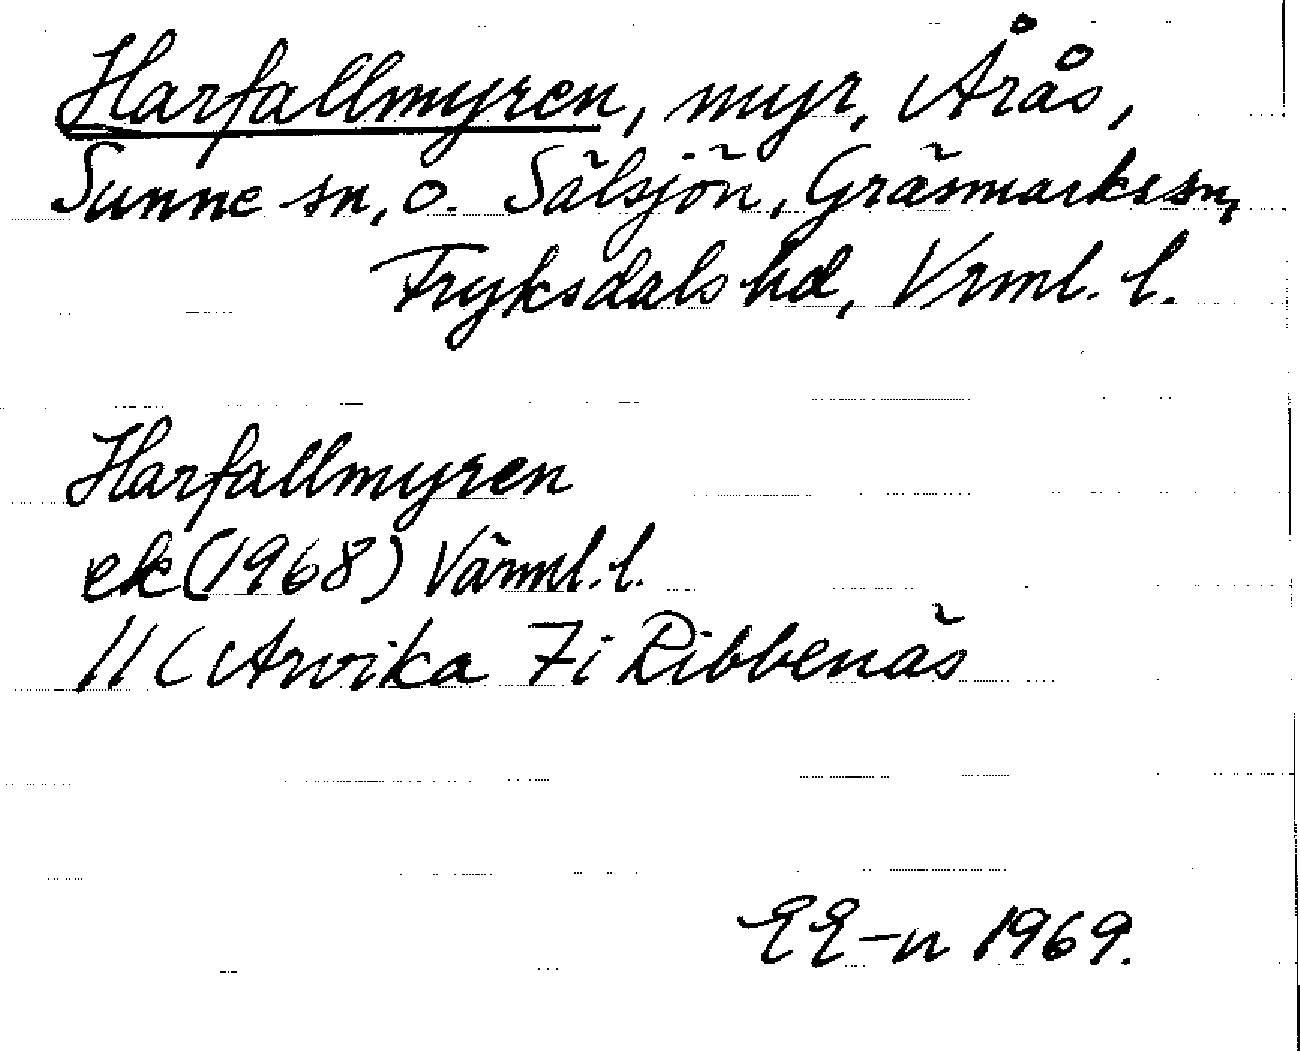 Harfallmyren, myr, Årås,
Sunne sn, o. Sälsjön, Gräsmarks sn,
Fryksdals hd, Vrml. l.
Harfallmyren
ek (1968) Värml. l.
11C Arvika 7i Ribbenäs
EE-n 1969.